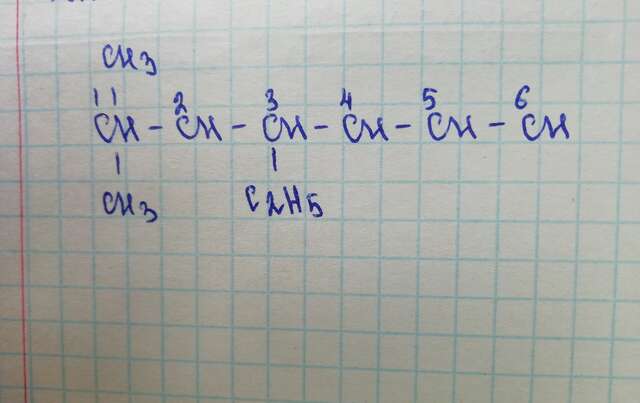 CH3
1 2 3 4 5 6
CH - CH - CH - CH - CH - CH
CH3 C2H5